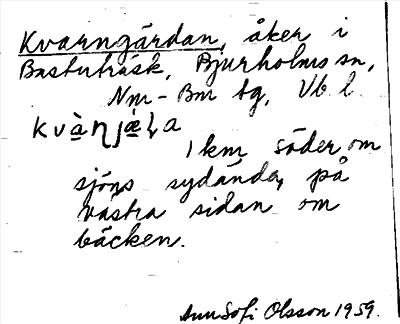 Kvarngärdan, åker i
Bastuträsk, Bjurholms sn,
Nm-Bm tg, Vb l.
1 km söder om
sjöns sydände, på
västra sidan om
bäcken.
Ann Sofi Olsson 1959.